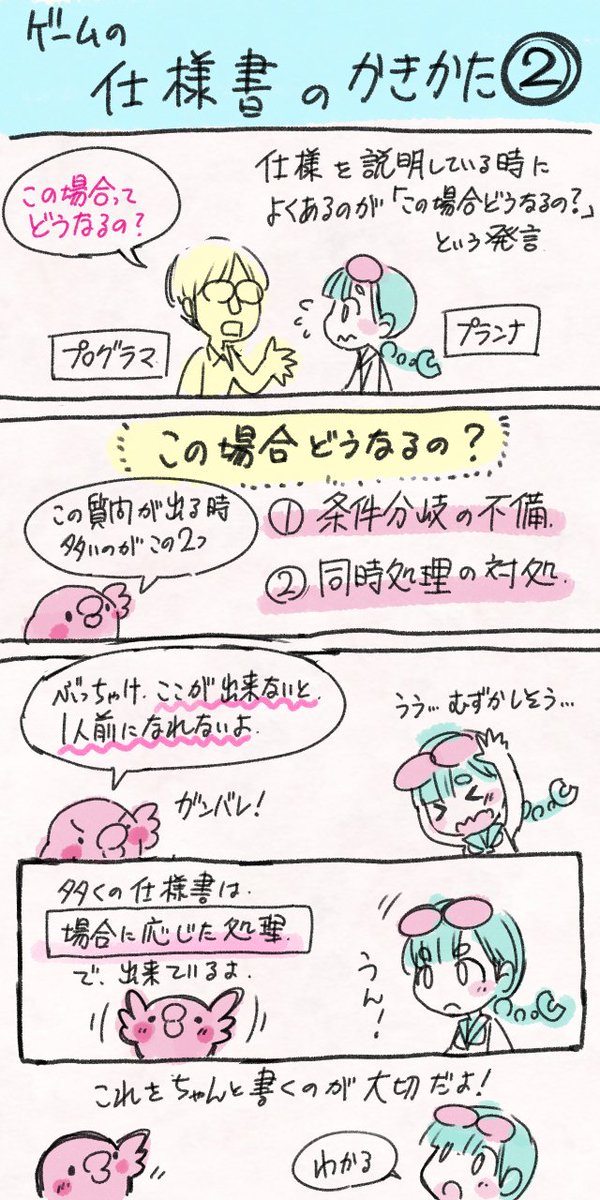 ゲームの
仕様書のかきかた②
この場合って
どうなるの?
仕様を説明している時に
よくあるのが「この場合どうなるの?」
という発言
プログラマ
プランナ
この場合どうなるの?
この質問が出る時
多いのがこの2つ
① 条件分岐の不備.
② 同時処理の対処.
ぶっちゃけ、ここが出来ないと、
1人前になれないよ.
ガンバレ!
うう…むずかしそう…
多くの仕様書は.
場合に応じた処理.
で、出来ているよ.
うん!
これをちゃんと書くのが大切だよ!
わかる